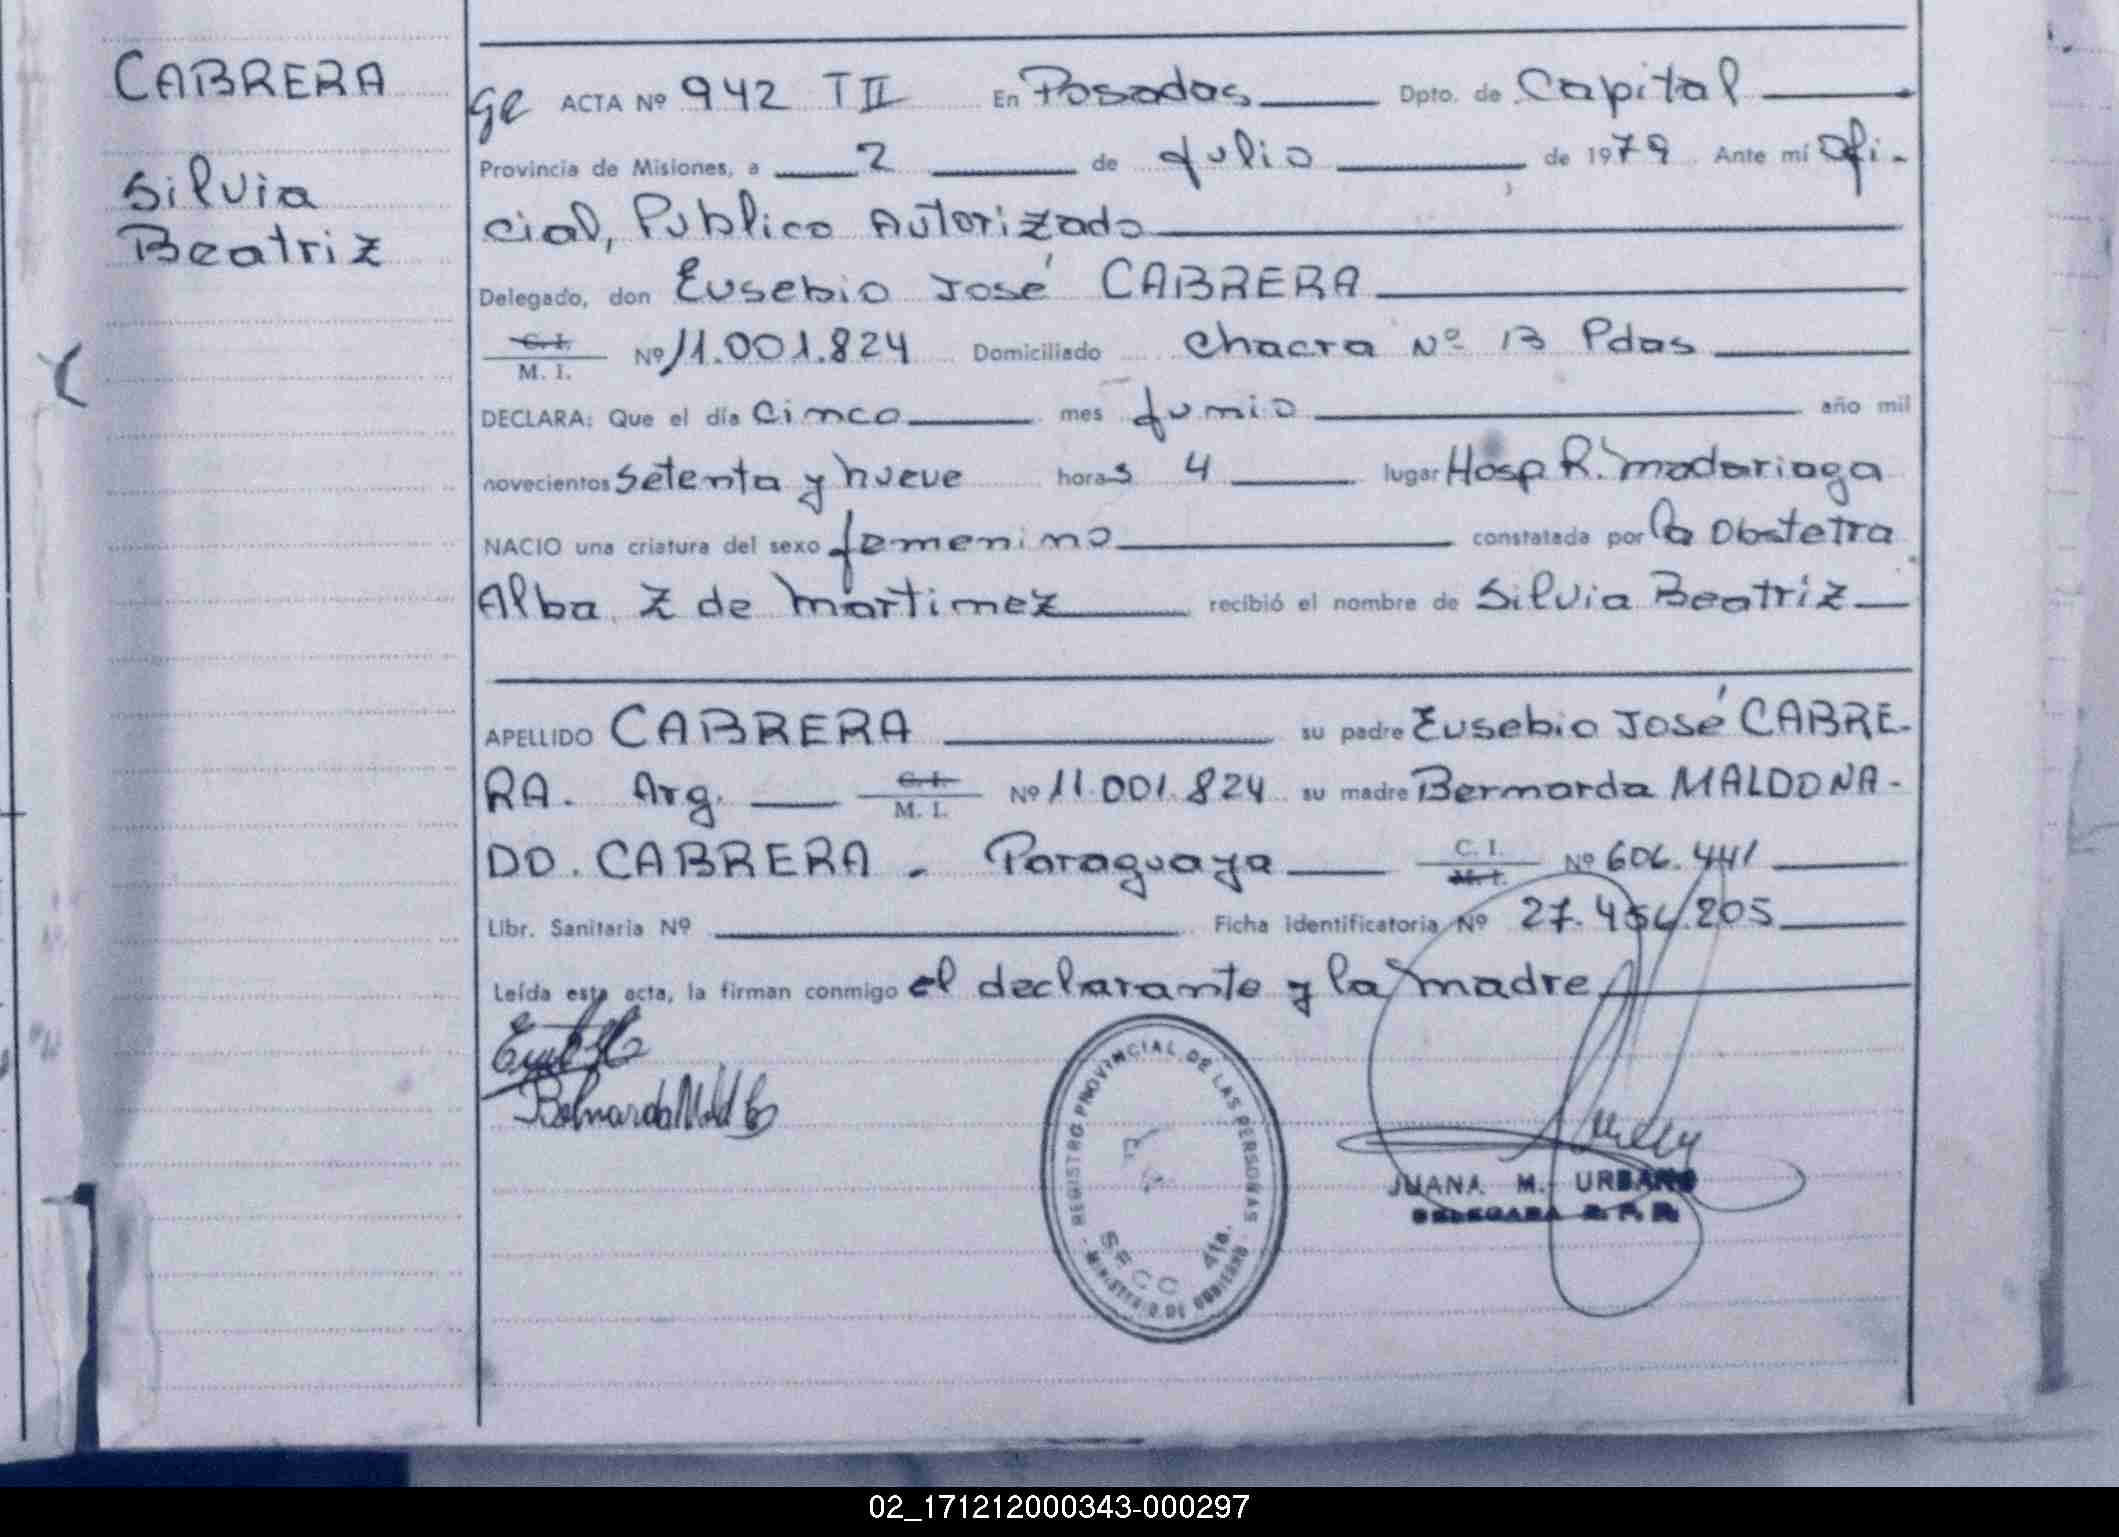 CABRERA
Silvia
Beatriz
ge ACTA Nº 942 T II En Posadas Dpto. de Capital
Provincia de Misiones, a 2 de julio de 1979 Ante mí Ofi-
cial, Publico Autorizado
Delegado, don Eusebio José CABRERA
C. I.
M. I. Nº 11.001.824 Domiciliado Chacra Nº 13 Pdas
DECLARA: Que el día Cinco mes junio año mil
novecientos setenta y nueve horas 4 lugar Hosp R. Madariaga
NACIO una criatura del sexo femenino constatada por la Obstetra
Alba Z de Martinez recibió el nombre de Silvia Beatriz
APELLIDO CABRERA su padre Eusebio José CABRE-
RA. Arg. C. I. M. I. Nº 11.001.824 su madre Bernarda MALDONA-
DO. CABRERA - Paraguaya C. I. M. I. Nº 606.441
Libr. Sanitaria Nº Ficha identificatoria Nº 27.456.205
Leída esta acta, la firman conmigo el declarante y la madre
REGISTRO PROVINCIAL DE LAS PERSONAS
SECC 4ta.
- MINISTERIO DE GOBIERNO -
JUANA M. URBANO
DELEGADA R. P. P.
02_171212000343-000297